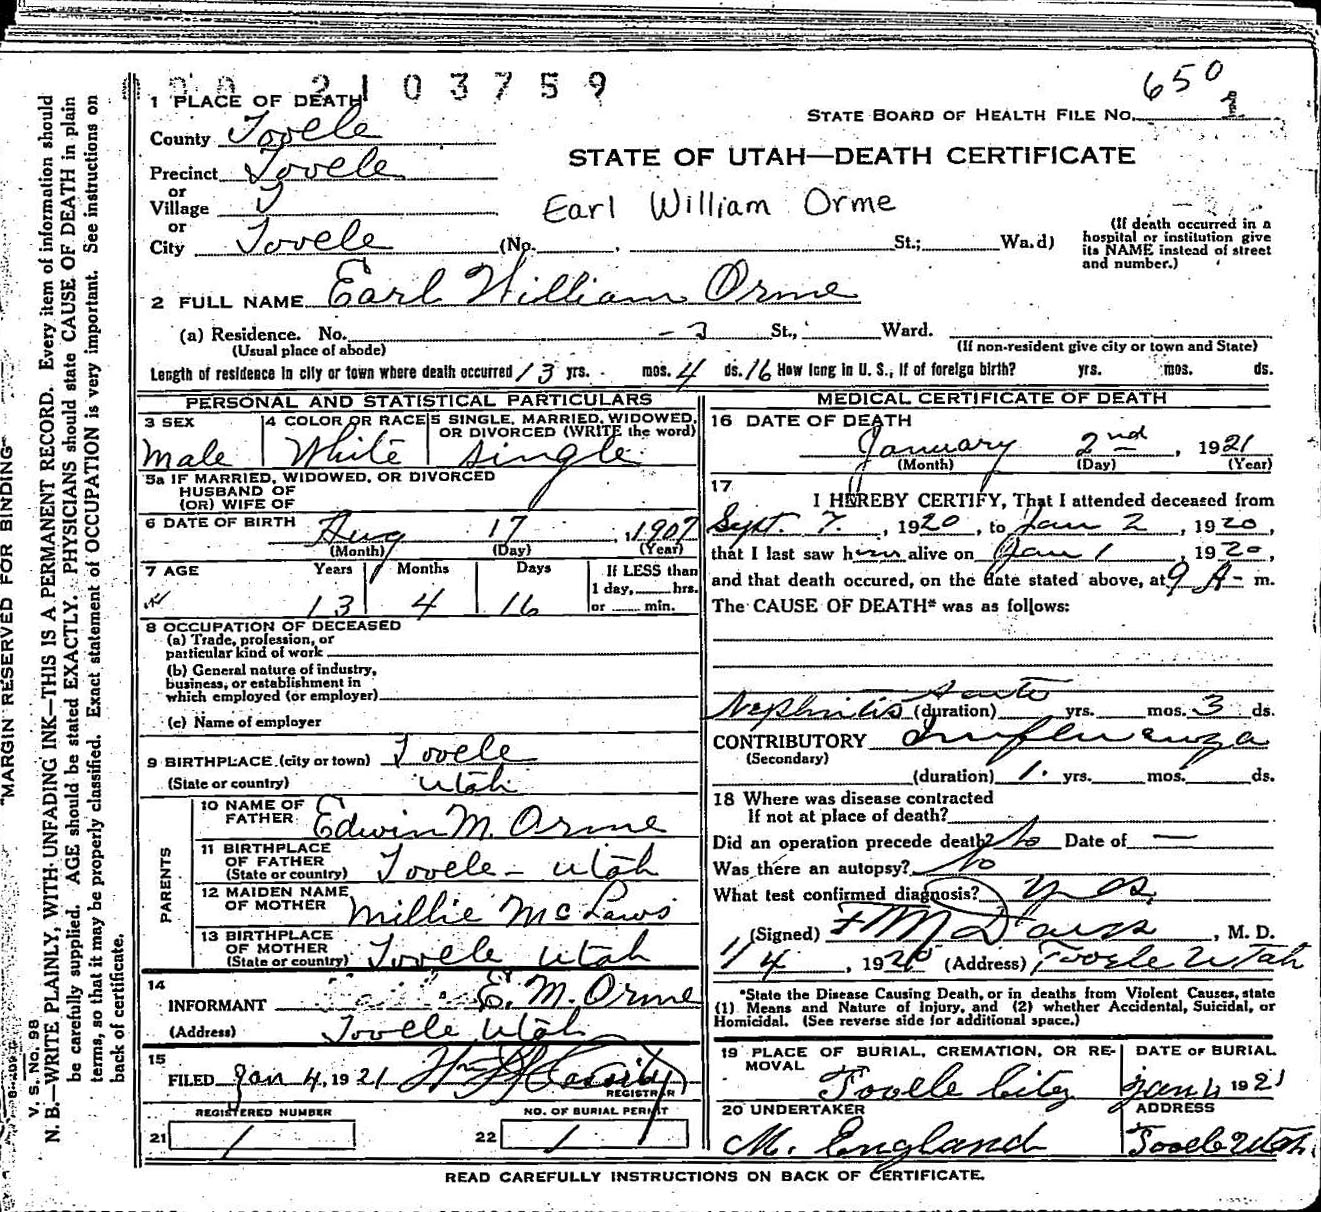 2103759
650
1 PLACE OF DEATH
STATE BOARD OF HEALTH FILE No. 2
County Tooele
STATE OF UTAH—DEATH CERTIFICATE
Precinct Tooele
or
Village
Earl William Orme
or
City Tooele (No. , St.; Wa.d)
(If death occurred in a hospital or institution give its NAME instead of street and number.)
2 FULL NAME Earl William Orme
(a) Residence. No. St., Ward.
(Usual place of abode) (If non-resident give city or town and State)
Length of residence in city or town where death occurred 13 yrs. mos. 4 ds. 16 How long in U. S., if of foreign birth? yrs. mos. ds.
PERSONAL AND STATISTICAL PARTICULARS
3 SEX Male
4 COLOR OR RACE White
5 SINGLE, MARRIED, WIDOWED, OR DIVORCED (WRITE the word) Single
5a IF MARRIED, WIDOWED, OR DIVORCED
HUSBAND OF
(OR) WIFE OF
6 DATE OF BIRTH Aug 17, 1907
(Month) (Day) (Year)
7 AGE Years Months Days If LESS than
1 day, hrs.
13 4 16 or min.
8 OCCUPATION OF DECEASED
(a) Trade, profession, or
particular kind of work
(b) General nature of industry,
business, or establishment in
which employed (or employer)
(c) Name of employer
9 BIRTHPLACE (city or town) Tooele
(State or country) Utah
PARENTS
10 NAME OF FATHER Edwin M. Orme
11 BIRTHPLACE OF FATHER (State or country) Tooele - Utah
12 MAIDEN NAME OF MOTHER Millie McLaws
13 BIRTHPLACE OF MOTHER (State or country) Tooele Utah
14
INFORMANT E. M. Orme
(Address) Tooele Utah
15
FILED Jan 4, 1921
REGISTRAR
REGISTERED NUMBER NO. OF BURIAL PERMIT
21 1 22 1
MEDICAL CERTIFICATE OF DEATH
16 DATE OF DEATH
January 2nd, 1921
(Month) (Day) (Year)
17
I HEREBY CERTIFY, That I attended deceased from
Sept. 7, 1920, to Jan 2, 1920,
that I last saw him alive on Jan 1, 1920,
and that death occured, on the date stated above, at 9 A- m.
The CAUSE OF DEATH* was as follows:
Acute
Nephritis (duration) yrs. mos. 3 ds.
CONTRIBUTORY Influenza
(Secondary)
(duration) 1. yrs. mos. ds.
18 Where was disease contracted
If not at place of death?
Did an operation precede death? No Date of —
Was there an autopsy? No
What test confirmed diagnosis? Yes.
(Signed) , M. D.
1/4, 1920 (Address) Tooele Utah
*State the Disease Causing Death, or in deaths from Violent Causes, state
(1) Means and Nature of Injury, and (2) whether Accidental, Suicidal, or
Homicidal. (See reverse side for additional space.)
19 PLACE OF BURIAL, CREMATION, OR REMOVAL Tooele City
DATE OF BURIAL Jan 4 1921
20 UNDERTAKER M. England
ADDRESS Tooele Utah
READ CAREFULLY INSTRUCTIONS ON BACK OF CERTIFICATE.
"MARGIN RESERVED FOR BINDING"
V. S. No. 98
N. B.—WRITE PLAINLY, WITH UNFADING INK—THIS IS A PERMANENT RECORD. Every item of information should
be carefully supplied. AGE should be stated EXACTLY. PHYSICIANS should state CAUSE OF DEATH in plain
terms, so that it may be properly classified. Exact statement of OCCUPATION is very important. See instructions on
back of certificate.